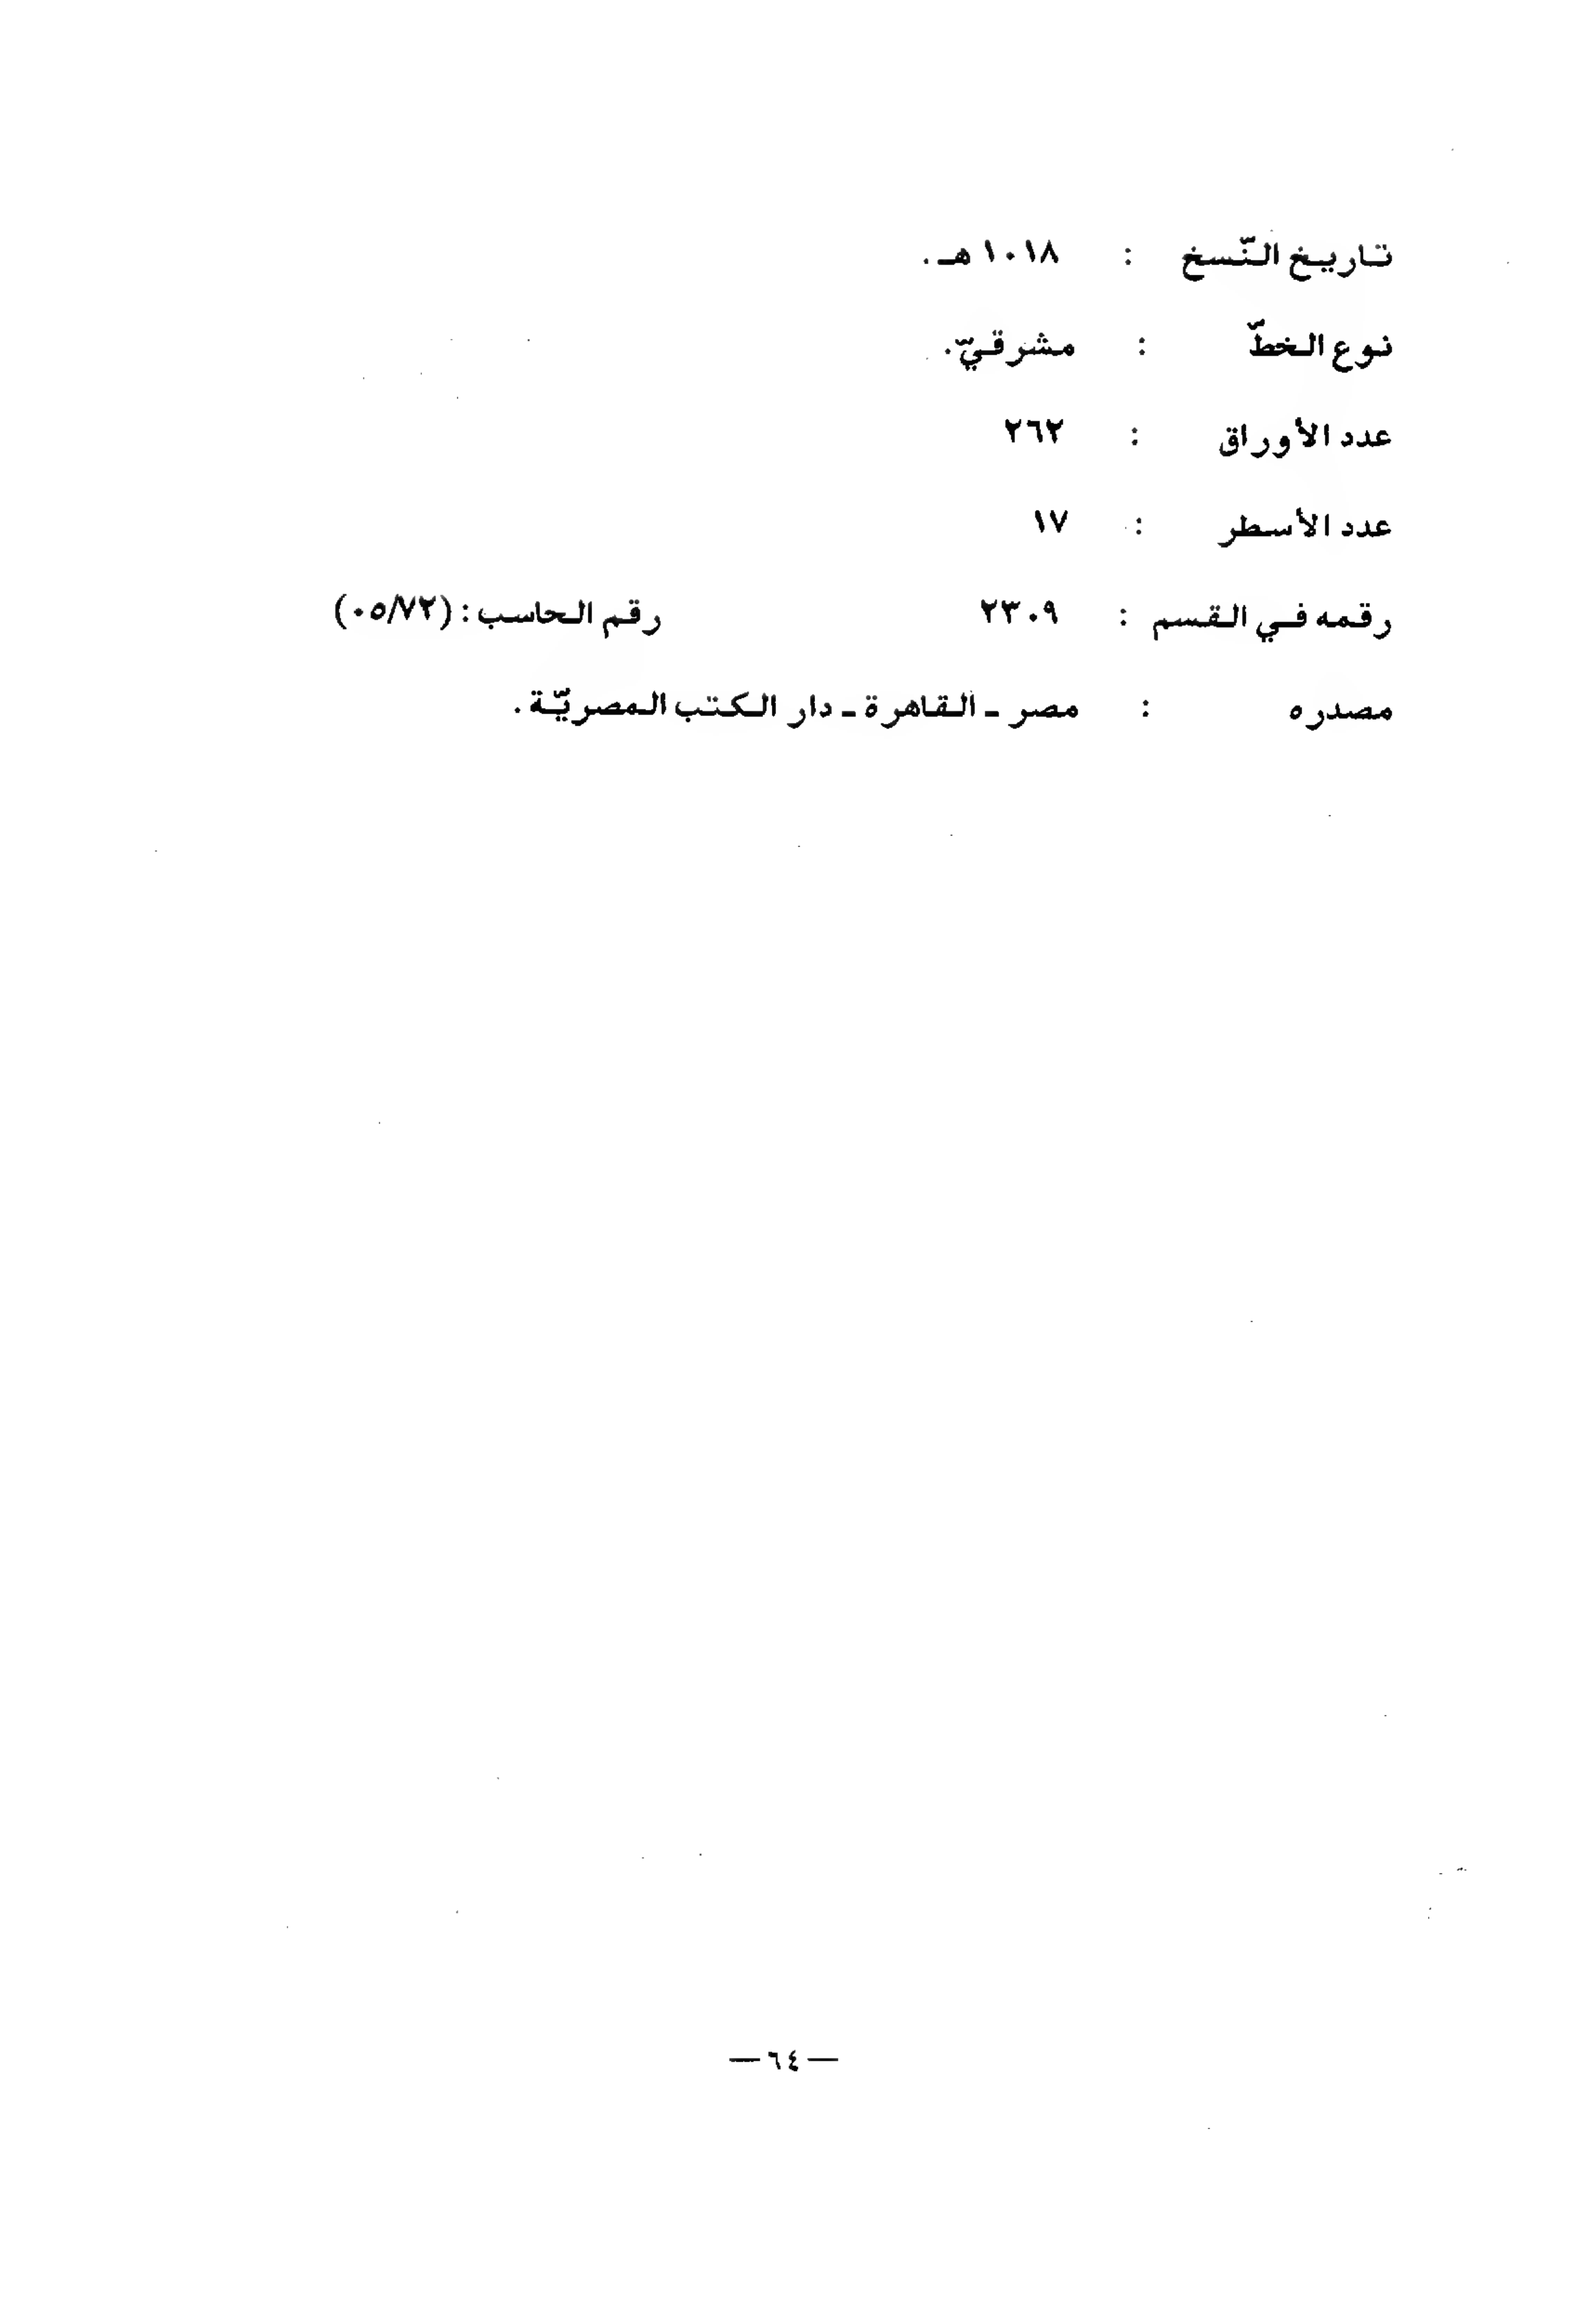 تاريخ النّسخ : ١٠١٨ هـ .
نوع الخطّ : مشرقيّ.
عدد الأوراق : ٢٦٢
عدد الأسطر : ١٧
رقمه في القسم : ٢٣٠٩ رقم الحاسب : (٠٥/٧٢)
مصدره : مصر ـ القاهرة ـ دار الكتب المصريّة .
— ٦٤ —